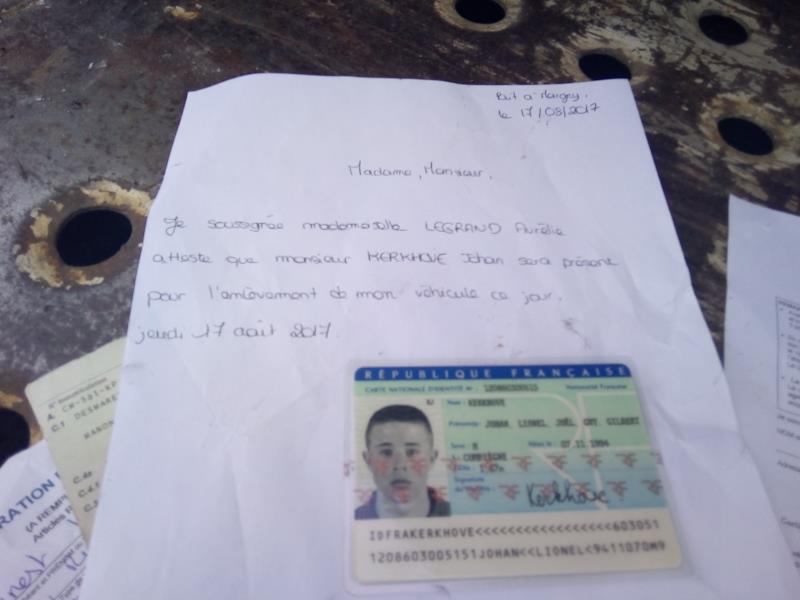 Fait à Margny,
le 17/08/2017
Madame, Monsieur,
Je soussignée mademoiselle LEGRAND Aurélie
atteste que monsieur KERKHOVE Johan sera présent
pour l'enlèvement de mon véhicule ce jour,
jeudi 17 août 2017.
RÉPUBLIQUE FRANÇAISE
CARTE NATIONALE D'IDENTITÉ N° : 120860300515 Nationalité Française
Nom : KERKHOVE
Prénom(s) : JOHAN, LIONEL, JOËL, GUY, GILBERT
Sexe : M Né(e) le : 07.11.1994
à COMPIÈGNE
Taille : 1,67m
Signature
du titulaire :
Kerkhove
IDFRAKERKHOVE<<<<<<<<<<<<<<<<<603051
1208603005151JOHAN<<LIONEL<9411070M9
N° Immatriculation
A. CH-501-KP
C.1 DESMARE
MANON
C.4a
RATION
(A REMP
Articles R